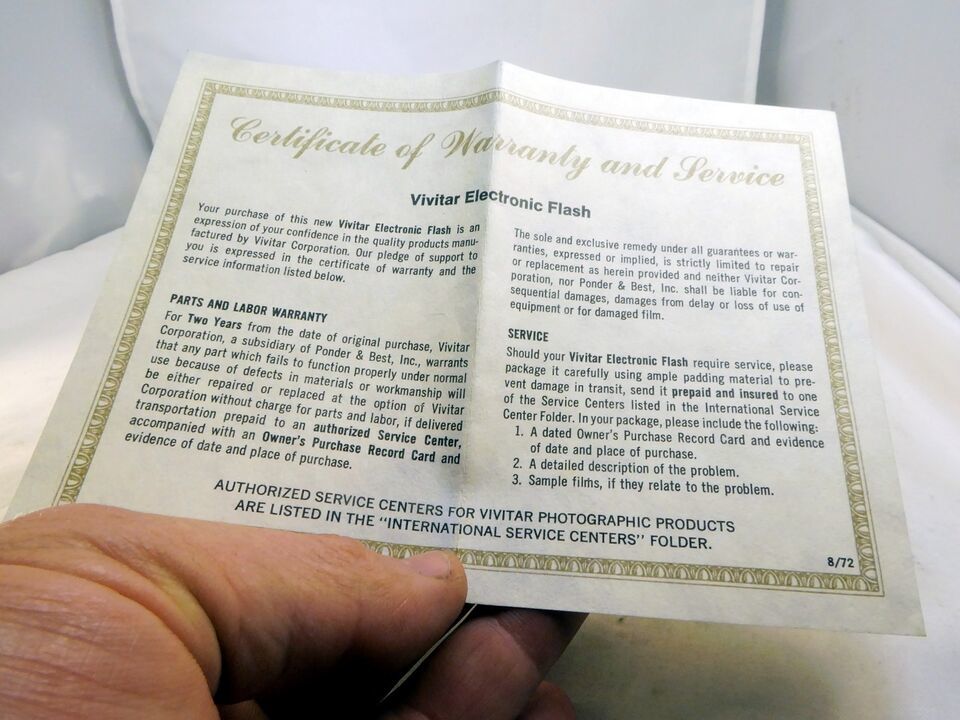 Certificate of Warranty and Service
Vivitar Electronic Flash
Your purchase of this new Vivitar Electronic Flash is an
expression of your confidence in the quality products manu-
factured by Vivitar Corporation. Our pledge of support to
you is expressed in the certificate of warranty and the
service information listed below.
PARTS AND LABOR WARRANTY
For Two Years from the date of original purchase, Vivitar
Corporation, a subsidiary of Ponder & Best, Inc., warrants
that any part which fails to function properly under normal
use because of defects in materials or workmanship will
be either repaired or replaced at the option of Vivitar
Corporation without charge for parts and labor, if delivered
transportation prepaid to an authorized Service Center,
accompanied with an Owner's Purchase Record Card and
evidence of date and place of purchase.
The sole and exclusive remedy under all guarantees or war-
ranties, expressed or implied, is strictly limited to repair
or replacement as herein provided and neither Vivitar Cor-
poration, nor Ponder & Best, Inc. shall be liable for con-
sequential damages, damages from delay or loss of use of
equipment or for damaged film.
SERVICE
Should your Vivitar Electronic Flash require service, please
package it carefully using ample padding material to pre-
vent damage in transit, send it prepaid and insured to one
of the Service Centers listed in the International Service
Center Folder. In your package, please include the following:
1. A dated Owner's Purchase Record Card and evidence
of date and place of purchase.
2. A detailed description of the problem.
3. Sample films, if they relate to the problem.
AUTHORIZED SERVICE CENTERS FOR VIVITAR PHOTOGRAPHIC PRODUCTS
ARE LISTED IN THE "INTERNATIONAL SERVICE CENTERS" FOLDER.
8/72